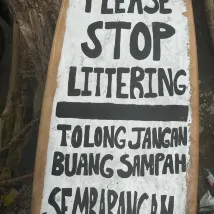 PLEASE
STOP
LITTERING
TOLONG JANGAN
BUANG SAMPAH
SEMBARANGAN